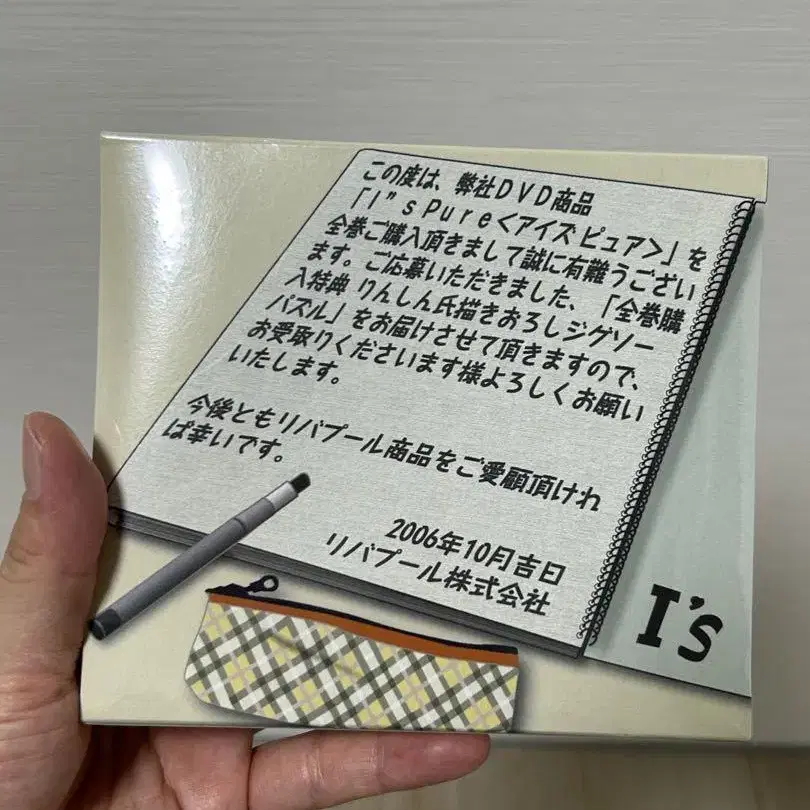 この度は、弊社DVD商品
「I"s Pure<アイズ ピュア>」を
全巻ご購入頂きまして誠に有難うござい
ます。ご応募いただきました、「全巻購
入特典 りんしん氏描きおろしジグソー
パズル」をお届けさせて頂きますので、
お受取りくださいます様よろしくお願い
いたします。
今後ともリバプール商品をご愛顧頂けれ
ば幸いです。
2006年10月吉日
リバプール株式会社
I's